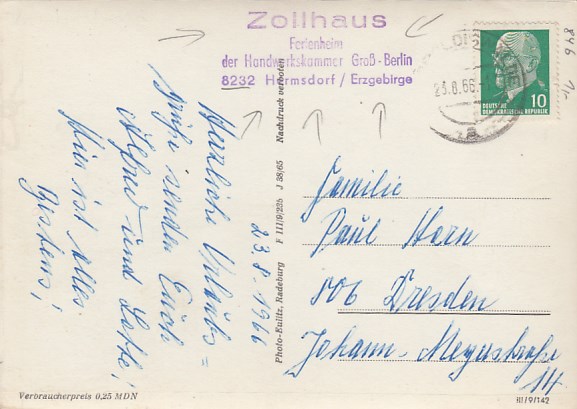 Zollhaus
Ferienheim
der Handwerkskammer Groß-Berlin
8232 Hermsdorf / Erzgebirge
23.8.66
10
DEUTSCHE
DEMOKRATISCHE REPUBLIK
846
1,-
Herzliche Urlaubs=
grüße senden Euch
Alfred und Lotte!
Hier ist alles
Bestens!
23.8.1966
Photo-Kulitz, Radeburg F III/9/225 J 38/65 Nachdruck verboten
Familie
Paul Horn
806 Dresden
Johann-Meyerstraße
14
Verbraucherpreis 0,25 MDN
III/9/142